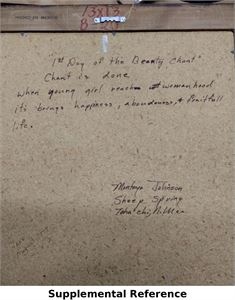 13X13
"1st Day of the Beauty Chant"
Chant is done
when young girl reach womanhood
its brings happiness, abundoness, & fruitfull
life.
Montoya Johnson
Sheep Spring
Tohatchi, N. Mex
Supplemental Reference